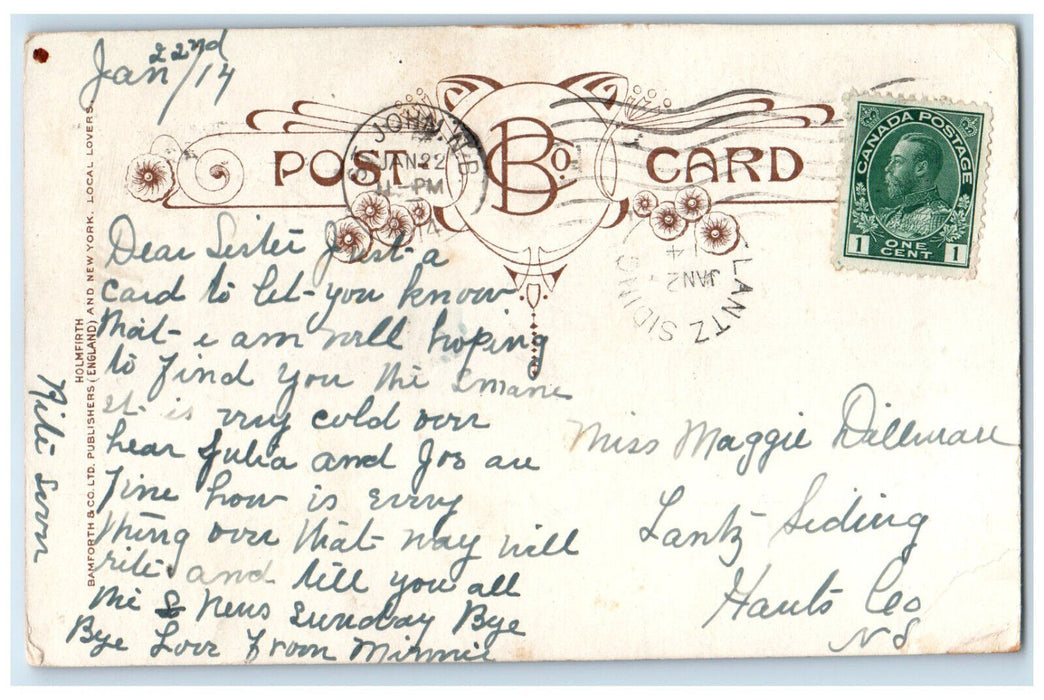 Jan 22nd/14
POST CARD
B Co.
ST. JOHN, N.B.
JAN 22
11-PM
14
CANADA POSTAGE
1 ONE CENT 1
LANTZ SIDING
JAN 2
14
HOLMFIRTH
BAMFORTH & CO. LTD. PUBLISHERS (ENGLAND) AND NEW YORK. LOCAL LOVERS.
Dear Sister Just a
card to let you know
that i am well hoping
to find you the smane
it is very cold over
hear Julia and Jos are
fine how is every
thing over that way will
rite and tell you all
the News Sunday Bye
Bye Love From Minnie
Rite soon
Miss Maggie Dillmare
Lantz Siding
Hants Co
N S